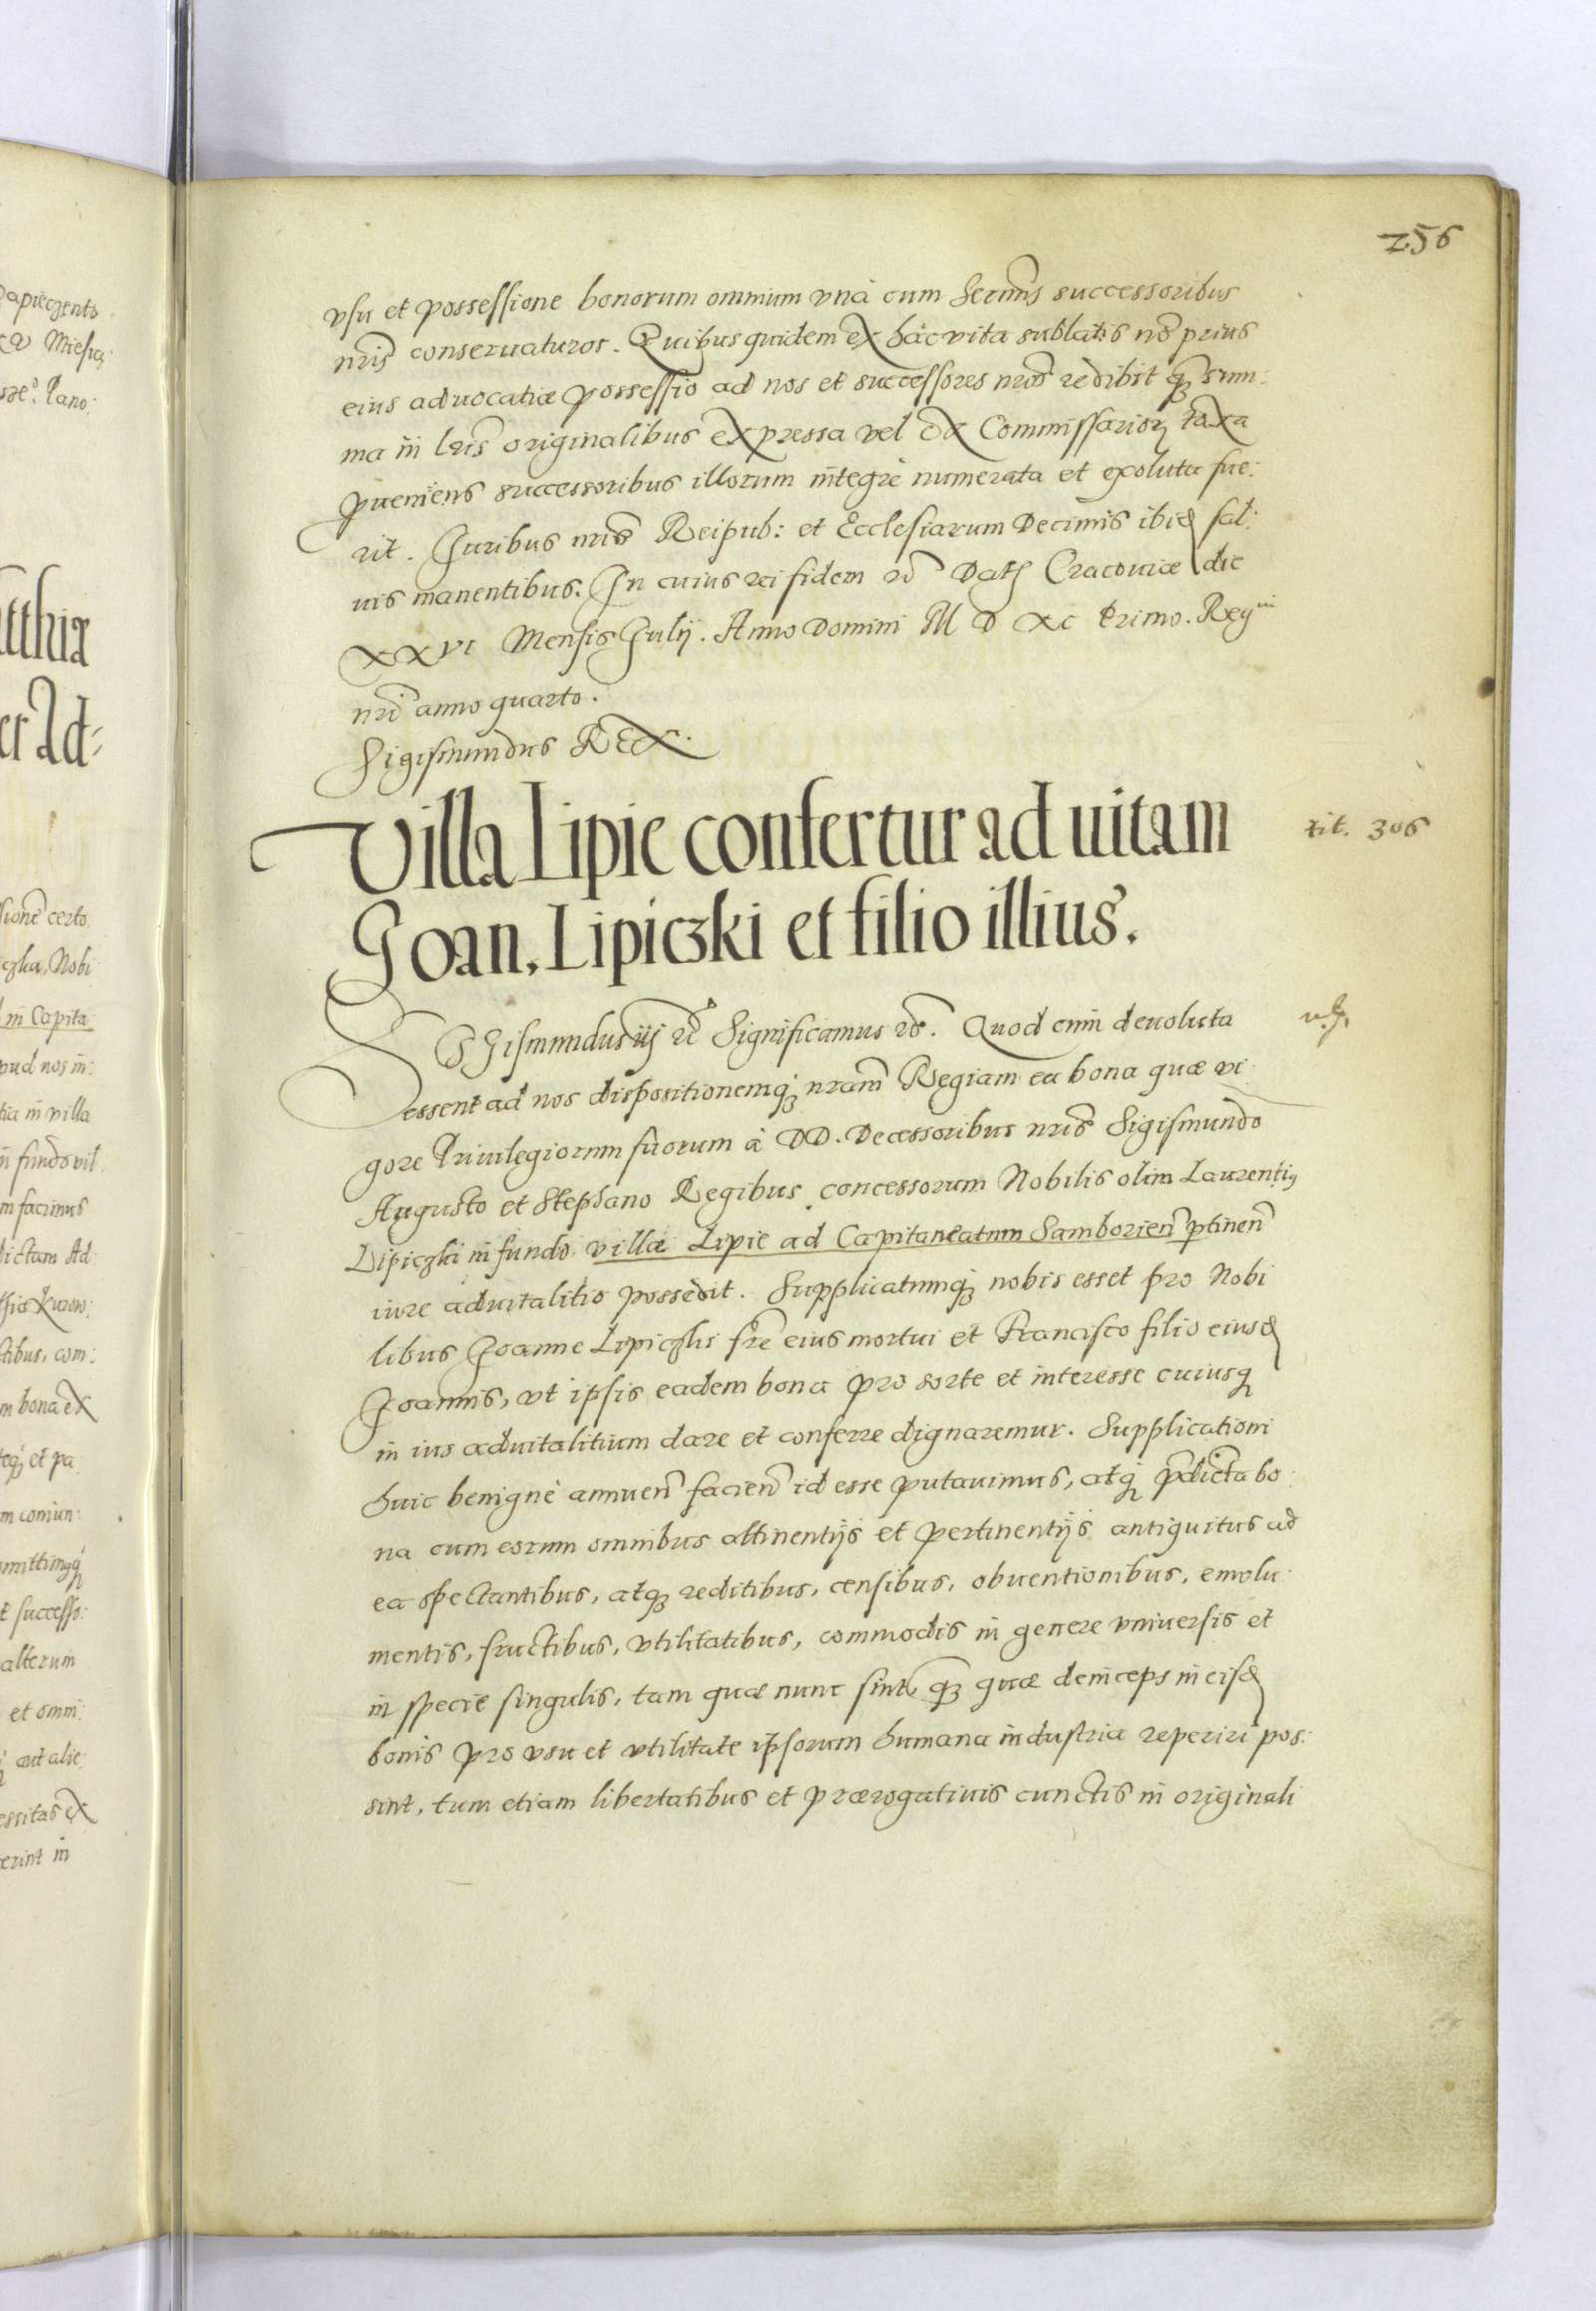 256
vsu et possessione bonorum omnium vnà cum Sermis successoribus
nris conseruaturos. Quibus quidem ex hàc vita sublatis nō prius
eius aduocatiæ possessio ad nos et successores nros redibit q̄ sum:
ma in lris originalibus expressa vel ex Commissarior taxa
pueniens successoribus illorum integrè numerata et exoluta fue:
rit. Juribus nris Reipub: et Ecclesiarum Decimis ibid sal:
uis manentibus. In cuius rei fidem etc Dat Cracouiæ die
XXVI Mensis Julij. Anno Domini M D XC Primo. Regni
nri anno quarto.
Sigismundus Rex.
Villa Lipie confertur ad uitam
Joan. Lipiczki et filio illius.
tit. 306
Sigismundus iij etc Significamus etc. Quod cum deuoluta
essent ad nos dispositionemq; nram Regiam ea bona quæ vi
gore Priuilegiorum suorum à DD. Decessoribus nris Sigismundo
Augusto et Stephano Regibus concessorum Nobilis olim Laurentius
Lipiczki in fundo villæ Lipie ad Capitaneatum Samborien ptinen
iure aduitalitio possedit. Supplicatumq; nobis esset pro Nobi
libus Joanne Lipiczki fre eius mortui et Francisco filio eiusd
Joannis, vt ipsis eadem bona pro sorte et interesse cuiusq
in ius aduitalitium dare et conferre dignaremur. Supplicationi
huic benignè annuen facien id esse putauimus, atq; pdicta bo:
na cum eorum omnibus attinentijs et pertinentijs antiquitus ad
ea spectantibus, atq; reditibus, censibus, obuentionibus, emolu:
mentis, fructibus, vtilitatibus, commodis in genere vniuersis et
in specie singulis, tam quæ nunc sint q̄ quæ deinceps in eisd
bonis pro vsu et vtilitate ipsorum humana industria reperiri pos:
sint, tum etiam libertatibus et prærogatiuis cunctis in originali